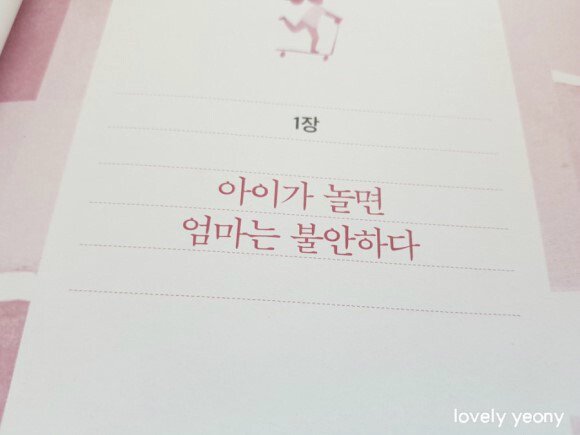 1장
아이가 놀면
엄마는 불안하다
lovely yeony